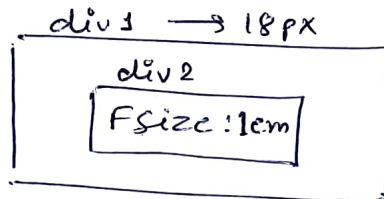 div1 → 18px
div2
Fsize:1em